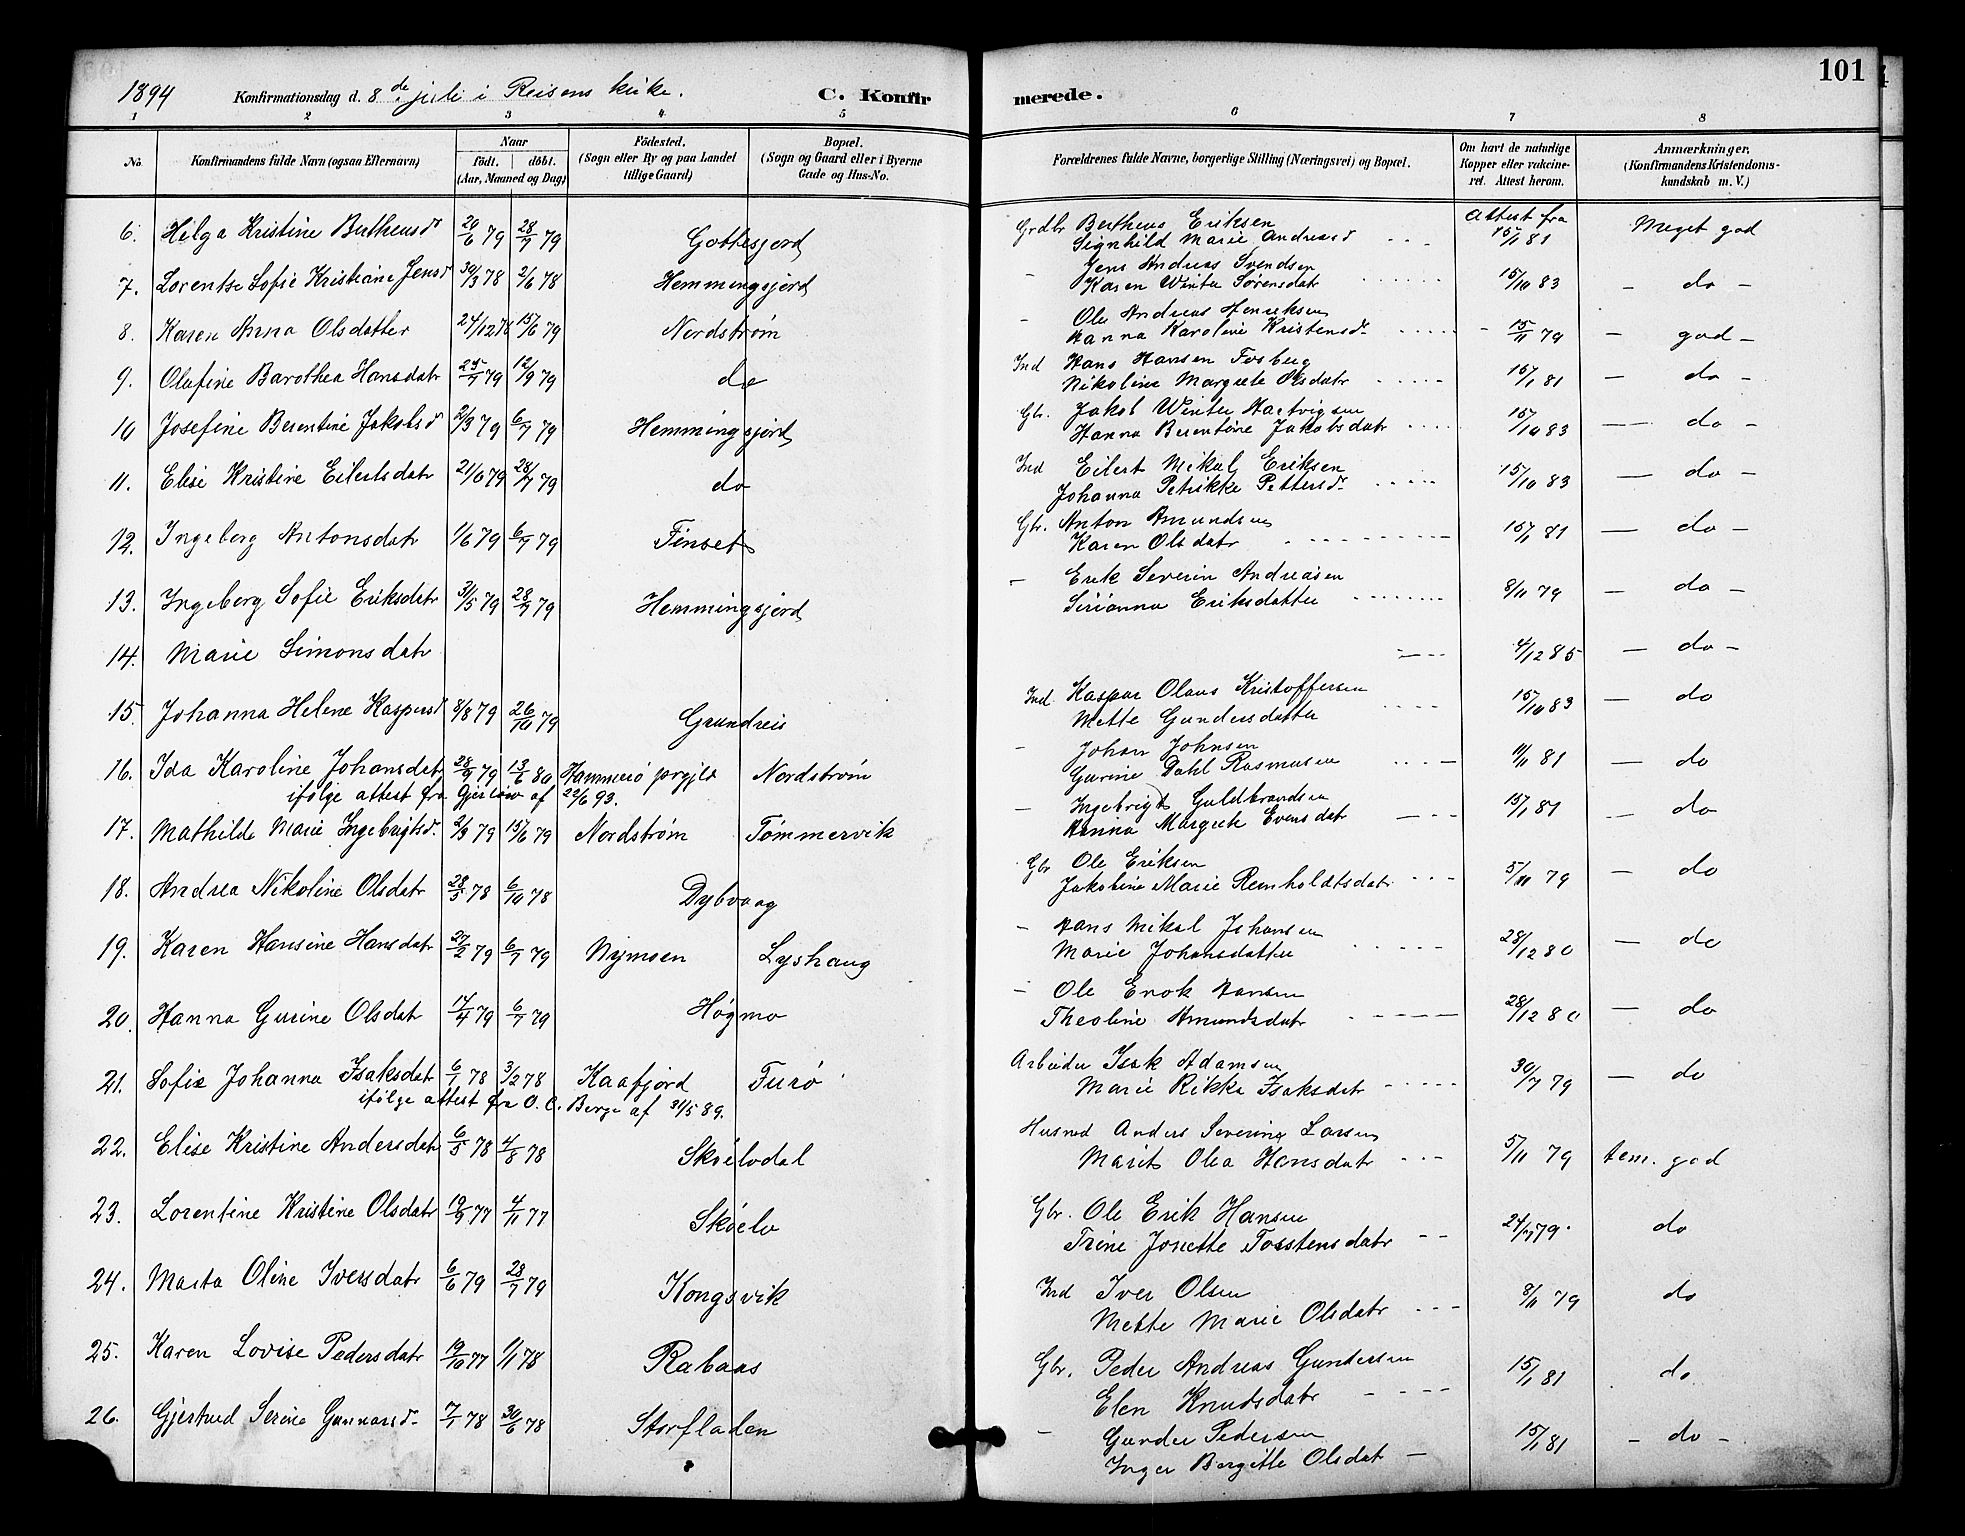 101
1894 Konfirmationsdag d. 8de juli i Reisens kirke. C. Konfirmerede.
1 2 3 4 5 6 7 8
No. Konfirmandens fulde Navn (ogsaa Efternavn) Naar födt. döbt. (Aar, Maaned og Dag) Födested. (Sogn eller By og paa Landet tillige Gaard) Bopæl. (Sogn og Gaard eller i Byerne Gade og Hus-No. Forældrenes fulde Navne, borgerlige Stilling (Næringsvei) og Bopæl. Om havt de naturlige Kopper eller vaccineret. Attest herom. Anmærkninger, (Konfirmandens Kristendomskundskab m. V.)
6. Helga Kristine Bertheusdr 20/6 79 28/7 79 Gottesjord Grdbr Bertheus Eriksen Attest fra 15/1 81 Meget god
Signhild Marie Andreasd
7. Lorentse Sofie Kristiane Jensd 30/3 78 2/6 78 Hemmingsjord - Jens Andreas Svendsen 15/10 83 - do -
Karen Winter Sørensdatr
8. Karen Anna Olsdatter 24/12 78 15/6 79 Nordstrøm - Ole Andreas Henriksen 15/11 79 - god -
Hanna Karoline Kristensdr
9. Olufine Barothea Hansdatr 25/7 79 12/9 79 do Ind Hans Hansen Fosberg 15/1 81 - do -
Nikoline Margrete Olsdatr
10 Josefine Berentine Jakobsd 2/3 79 6/7 79 Hemmingsjord Gbr. Jakob Winter Hartvigsen 15/10 83 - do -
Hanna Berentine Jakobsdatr
11. Elise Kristine Eilertsdatr 21/6 79 28/7 79 do Ind Eilert Mikal Eriksen 15/10 83 - do -
Johanna Petrikke Pettersdr
12. Ingeborg Antonsdatr 1/6 79 6/7 79 Finset Gbr. Anton Amundsen 15/1 81 - do -
Karen Olsdatr
13. Ingeborg Sofie Eriksdatr 31/5 79 28/7 79 Hemmingsjord - Erik Severin Andreasen 8/11 79 - do -
Sirianna Eriksdatter
14. Marie Simonsdatr 4/12 85 - do -
15. Johanna Helene Kaspersd 8/8 79 26/10 79 Grundreis Ind Kaspar Olaus Kristoffersen 15/10 83 - do
Mette Gundersdatter
16. Ida Karoline Johansdatr 28/9 79 13/6 80 Hammerø prgjld Nordstrøm - Johan Johnsen 11/11 81 - do
ifølge attest fra Gjerløw af 22/6 93. Gurine Dahl Rasmusen
17. Mathilde Marie Ingebrigtsdr. 2/3 79 15/6 79 Nordstrøm Tømmervik - Ingebrigt Guldbrandsen 15/1 81 - do
Anna Margrete Evensdatr
18. Andrea Nikoline Olsdatr 28/5 78 6/10 78 Dybvaag Gbr Ole Eriksen 5/11 79 - do
Jakobina Marie Reinholdtsdatr
19. Karen Hansine Hansdatr 27/2 79 6/7 79 Nymoen Lyshaug - Hans Mikal Johansen 28/12 80 - do
Marie Johansdatter
20. Hanna Gurine Olsdatr 14/4 79 6/7 79 Høgmo - Ole Enok Hansen 28/12 80 - do
Theoline Amundsdatr
21. Sofie Johanna Isaksdatr 6/1 78 3/2 78 Kaafjord Furø Arbeider Isak Adamsen 30/7 79 - do
ifølge attest fra O. C. Berge af 31/5 89. Marie Rikka Isaksdatr
22. Elise Kristine Andersdatr 6/5 78 4/8 78 Skøelvdal Husmd Anders Severin Larsen 5/11 79 tem. god
Marit Olea Hansdatr
23. Lorentine Kristine Olsdatr 19/9 77 4/11 77 Skøelv Gbr. Ole Erik Hansen 24/7 79 do
Trine Josette Torstensdatr
24. Marta Oline Iversdatr 6/6 79 28/7 79 Kongsvik Ind Iver Olsen 8/11 79 do
Mette Marie Olsdatr
25. Karen Lovise Pedersdatr 19/10 77 1/1 78 Rabaas Gbr. Peder Andreas Gundersen 15/1 81 do
Elen Knudsdatr
26. Gjertrud Serina Gunnarsd. 7/1 78 30/6 78 Storfladen - Gunder Pedersen 15/1 81 - do -
Inger Bergitte Olsdat -